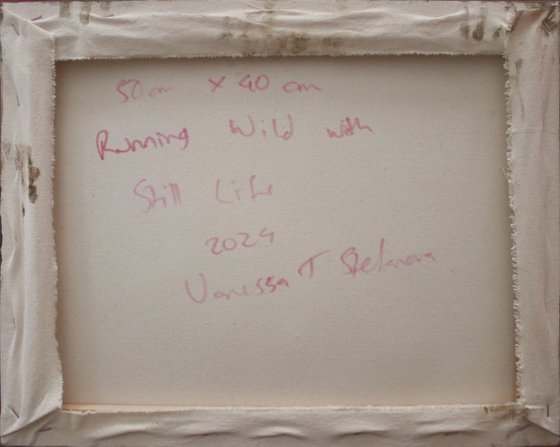 50 cm x 40 cm
Running Wild with
Still Life
2024
Vanessa T